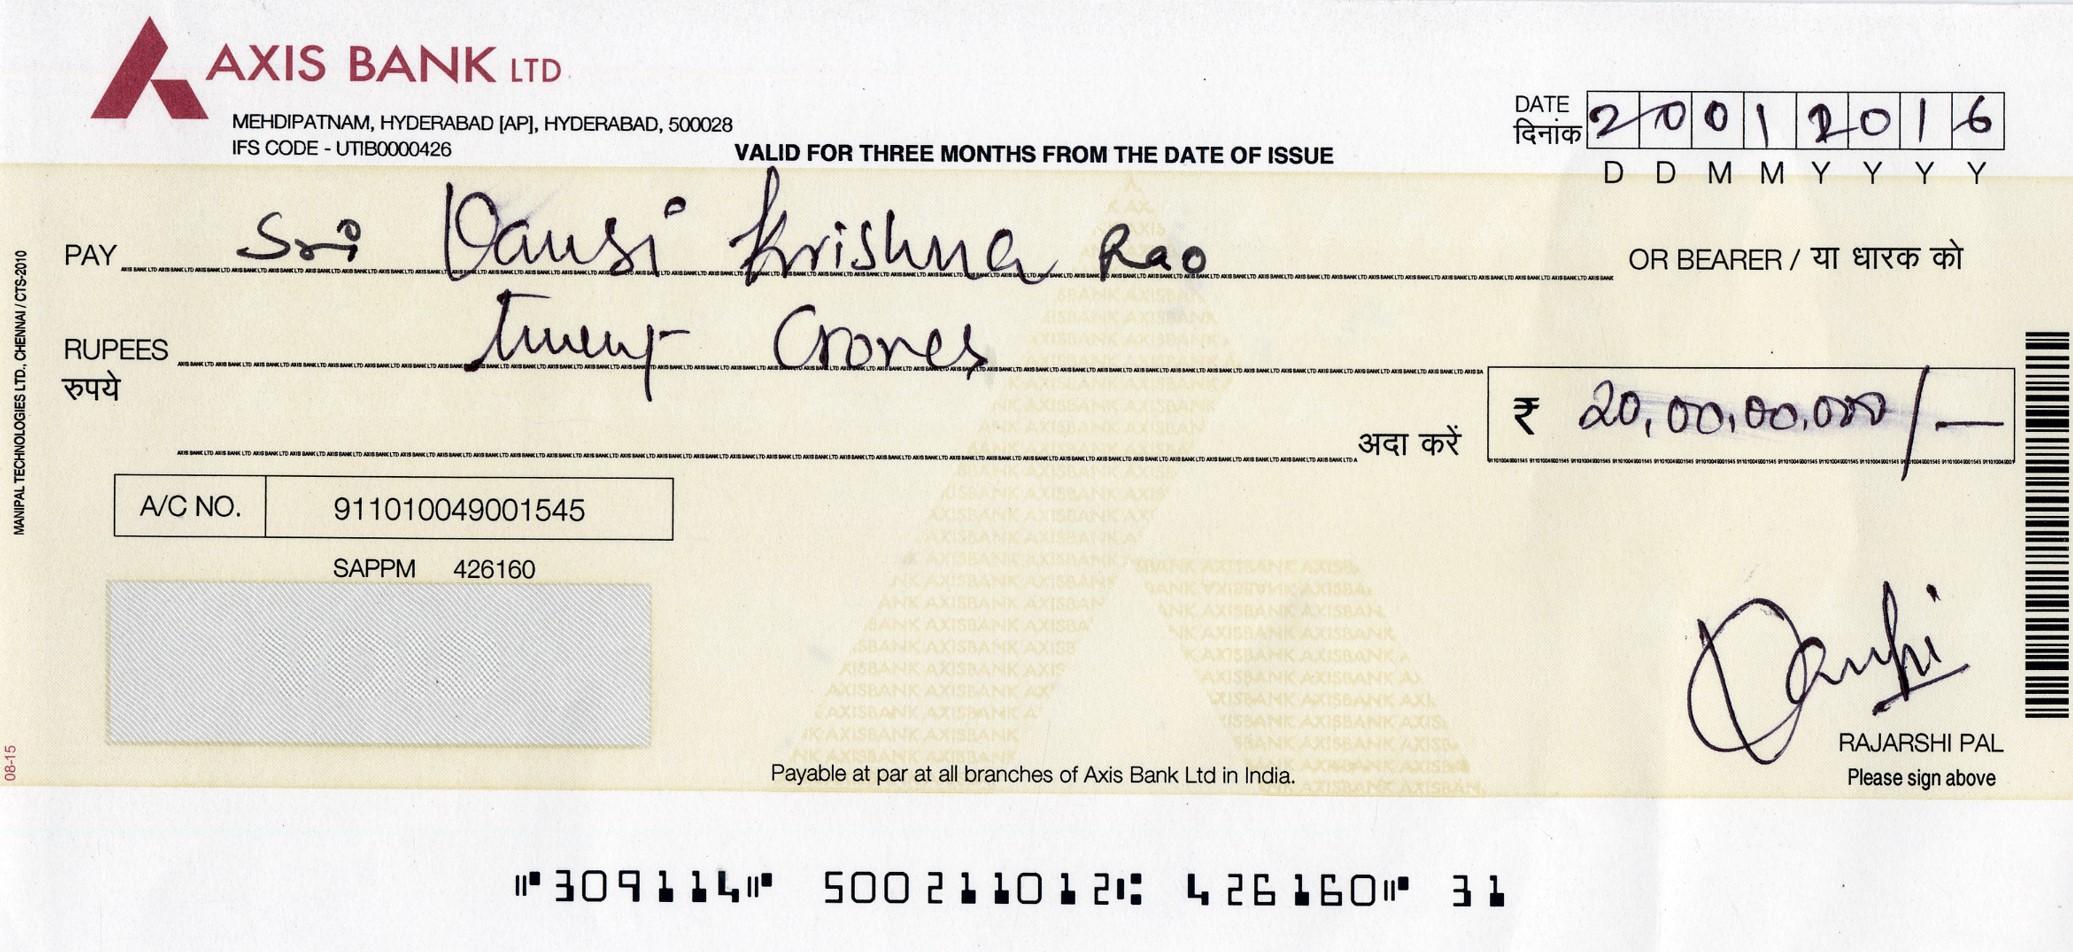 AXIS BANK LTD
MEHDIPATNAM, HYDERABAD [AP], HYDERABAD, 500028
IFS CODE - UTIB0000426
VALID FOR THREE MONTHS FROM THE DATE OF ISSUE
DATE 20012016
दिनांक
D D M M Y Y Y Y
PAY Sri Vamsi Krishna Rao OR BEARER / या धारक को
RUPEES Twenty Crores
रुपये
अदा करें ₹ 20,00,00,000/-
A/C NO. 911010049001545
SAPPM 426160
VOID
RAJARSHI PAL
Please sign above
Payable at par at all branches of Axis Bank Ltd in India.
MANIPAL TECHNOLOGIES LTD., CHENNAI / CTS-2010
08-15
⑈309114⑈ 500211012⑆ 426160⑈ 31